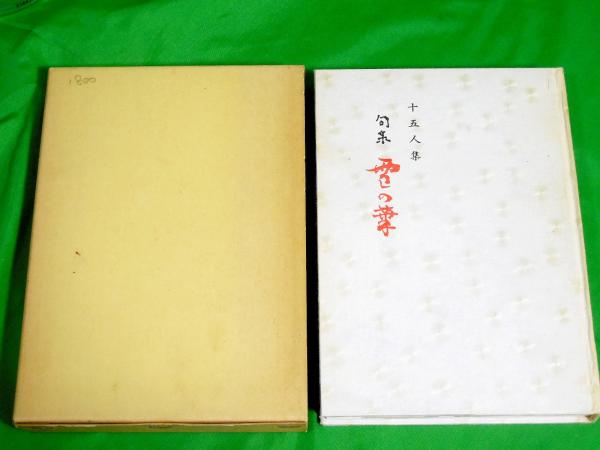 1800
十五人集
句集
雪の華